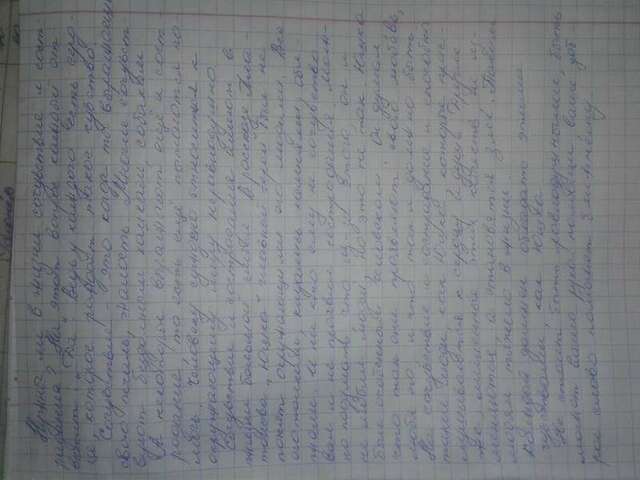 Нужны ли в жизни сочувствие и сост-
радание? На этот вопрос каждый от
ветит "Да". Ведь у каждого есть серд-
це, которое рождает такое чувство.
Сочувствие - это когда ты выражаешь
свою печаль, жалость. Многие сочувст-
вуют бездомным кошкам, собакам.
А некоторые выражают ещё и сост-
радание, то есть ещё пытаются по-
мочь. Человеку суждено относиться к
окружающему миру неравнодушно.
Сочувствие и сострадание имеют в
жизни большой смысл. В рассказе Пла-
тонова "Юшка" главный герой был не
понят окружающими его людьми. Все
его кидались камнями, оби-
жали. И ни кто ему не сочувство
вал и не проявлял сострадания. Мож-
но подумать что из-за этого он и
не любил людей, но это не так. Юшка
был особенным человеком. Он думал
что так они проявляют свою любовь,
и что так и должно быть
На сочувствие и сострадание и способны
такие люди, как Юшка, которые прис-
лушиваются к сердцу и душе. Другие
же, лишённые этих качеств не из-
меняются, а становятся злее. Таким
людям тяжело в жизни.
Каждый должен обладать этими
чувствами, как Юшка
Не стоит быть равнодушными, быть
может ваша рука помощи, ваше доб-
рое слово поможет